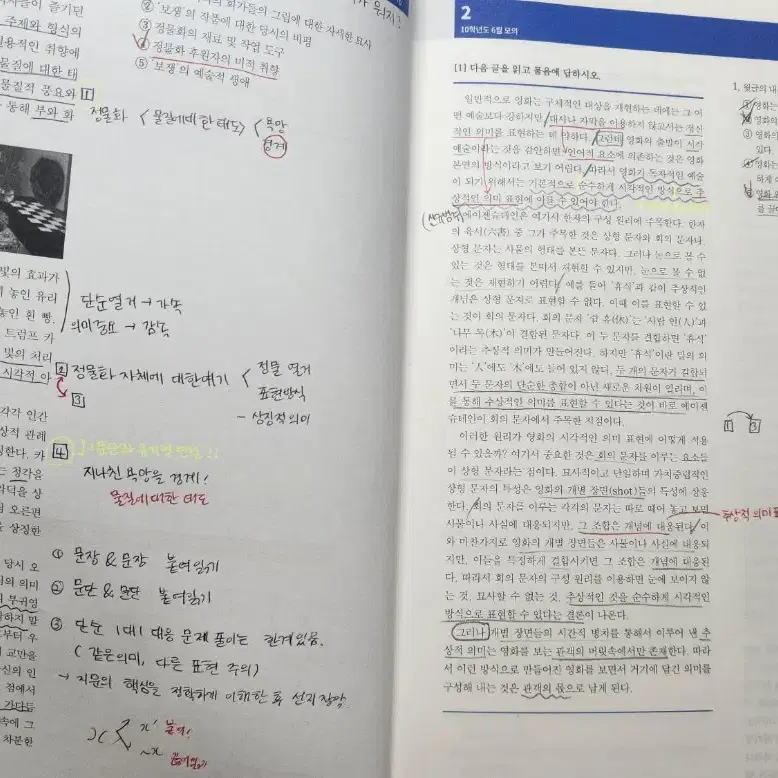 ③ 정물화의 재료 및 작업 도구
④ 정물화 후원자의 미적 취향
⑤ '보쟁'의 예술적 생애
주제와 형식의
물질에 대한 태
물질적 풍요와 1
통해 부와 화
정물화 < 물질에 대한 태도 > < 욕망
경계
빛의 효과가
놓인 유리
놓인 흰 빵,
트럼프 카
빛의 처리
시각적 아
단순열거 → 가독
의미중요 → 감독
2 정물화 자체에 대한 얘기 < 정물 열거
표현방식
- 상징적 의미
3
각각 인간
4
지나친 욕망을 경계!
물질에 대한 태도
정각을
오른편
상징한
당시 오
의 의미
① 문장 & 문장 붙여읽기
② 문단 & 문단 붙여읽기
③ 단순 1대1 대응 문제 풀이는 한계있음.
(같은의미, 다른 표현 주의)
→ 지문의 핵심을 정확하게 이해한 후 선지 장악
x < x' 붙여!
~x
2
10학년도 6월 모의
[1] 다음 글을 읽고 물음에 답하시오.
일반적으로 영화는 구체적인 대상을 재현하는 데에는 그 어
떤 예술보다 강하지만, 대사나 자막을 이용하지 않고서는 정신
적인 의미를 표현하는 데 약하다. 그런데 영화의 출발이 시각
예술이라는 것을 감안하면, 언어적 요소에 의존하는 것은 영화
본연의 방식이라고 보기 어렵다. 따라서 영화가 독자적인 예술
이 되기 위해서는 기본적으로 순수하게 시각적인 방식으로 추
상적인 의미 표현에 이를 수 있어야 한다.
에이젠슈테인은 여기서 한자의 구성 원리에 주목한다. 한자
의 육서(六書) 중 그가 주목한 것은 상형 문자와 회의 문자다.
상형 문자는 사물의 형태를 본뜬 문자다. 그러나 눈으로 볼 수
있는 것은 형태를 본떠서 재현할 수 있지만, 눈으로 볼 수 없
는 것은 재현하기 어렵다. 예를 들어 '휴식'과 같이 추상적인
개념은 상형 문자로 표현할 수 없다. 이때 이를 표현할 수 있
는 것이 회의 문자다. 회의 문자 '쉴 휴(休)'는 '사람 인(人)'과
'나무 목(木)'이 결합된 문자다. 이 두 문자를 결합하면 '휴식'
이라는 추상적 의미가 만들어진다. 하지만 '휴식'이란 말의 의
미는 '人'에도 '木'에도 들어 있지 않다. 두 개의 문자가 결합되
면서 두 문자의 단순한 총합이 아닌 새로운 차원이 열리며, 이
를 통해 추상적인 의미를 표현할 수 있다는 것이 바로 에이젠
슈테인이 회의 문자에서 주목한 지점이다.
이러한 원리가 영화의 시각적인 의미 표현에 어떻게 적용
될 수 있을까? 여기서 중요한 것은 회의 문자를 이루는 요소들
이 상형 문자라는 점이다. 묘사적이고 단일하며 가치중립적인
상형 문자의 특성은 영화의 개별 장면(shot)들의 특성에 상응
한다. 회의 문자를 이루는 각각의 문자는 따로 떼어 놓고 보면
사물이나 사실에 대응되지만, 그 조합은 개념에 대응된다. 이
와 마찬가지로 영화의 개별 장면들은 사물이나 사실에 대응되
지만, 이들을 특정하게 결합시키면 그 조합은 개념에 대응된
다. 따라서 회의 문자의 구성 원리를 이용하면 눈에 보이지 않
는 것, 묘사할 수 없는 것, 추상적인 것을 순수하게 시각적인
방식으로 표현할 수 있다는 결론이 나온다.
그러나 개별 장면들의 시간적 병치를 통해서 이루어 낸 추
상적 의미는 영화를 보는 관객의 머릿속에서만 존재한다. 따라
서 이런 방식으로 만들어진 영화를 보면서 거기에 담긴 의미를
구성해 내는 것은 관객의 몫으로 남게 된다.
1. 윗글의 내
1 3
추상적 의미